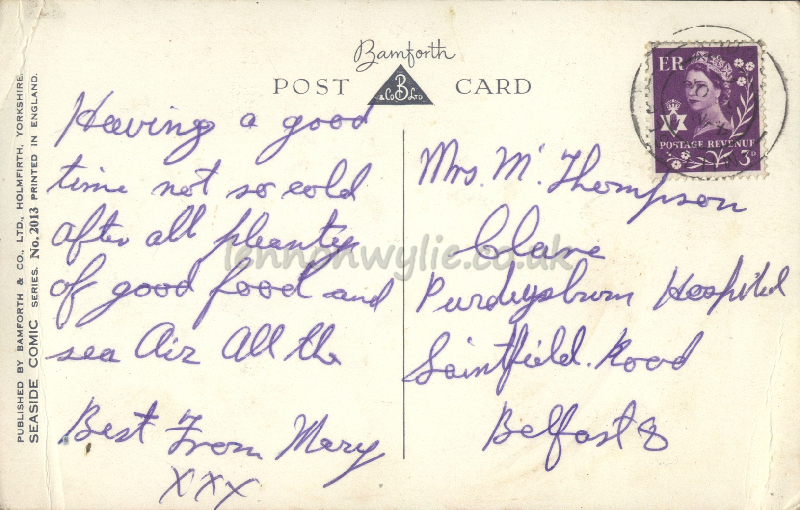 Bamforth
POST CARD
& Co B LTD
Having a good
time not so cold
after all pleanty
of good food and
sea Air All the
Best From Mary
XXX
Mrs. M. Thompson
Clare
Purdeysburn Hospital
Saintfield. Road
Belfast 8
ER
POSTAGE REVENUE
3D
PUBLISHED BY BAMFORTH & CO., LTD., HOLMFIRTH, YORKSHIRE.
SEASIDE COMIC SERIES. No. 2013 PRINTED IN ENGLAND.
lennonwylie.co.uk